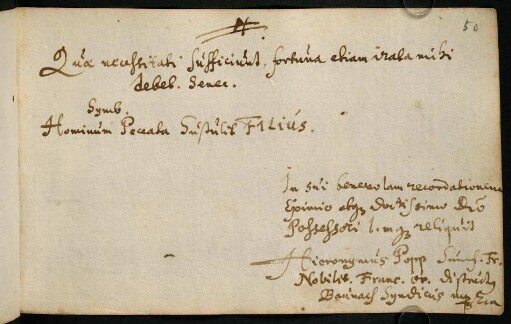 50
Quae necessitati sufficiunt, fortuna etiam irata mihi
debet. Senec.
Symb.
Hominum Peccata Sustulit FILIUS.
In sui benevolam recordationem
Eximio atqz Doctissimo Dno
Possessori l. m. qz reliquit
Hieronymus Popp
Nobilit. Franc. or. districtus
Baunach Syndicus mp